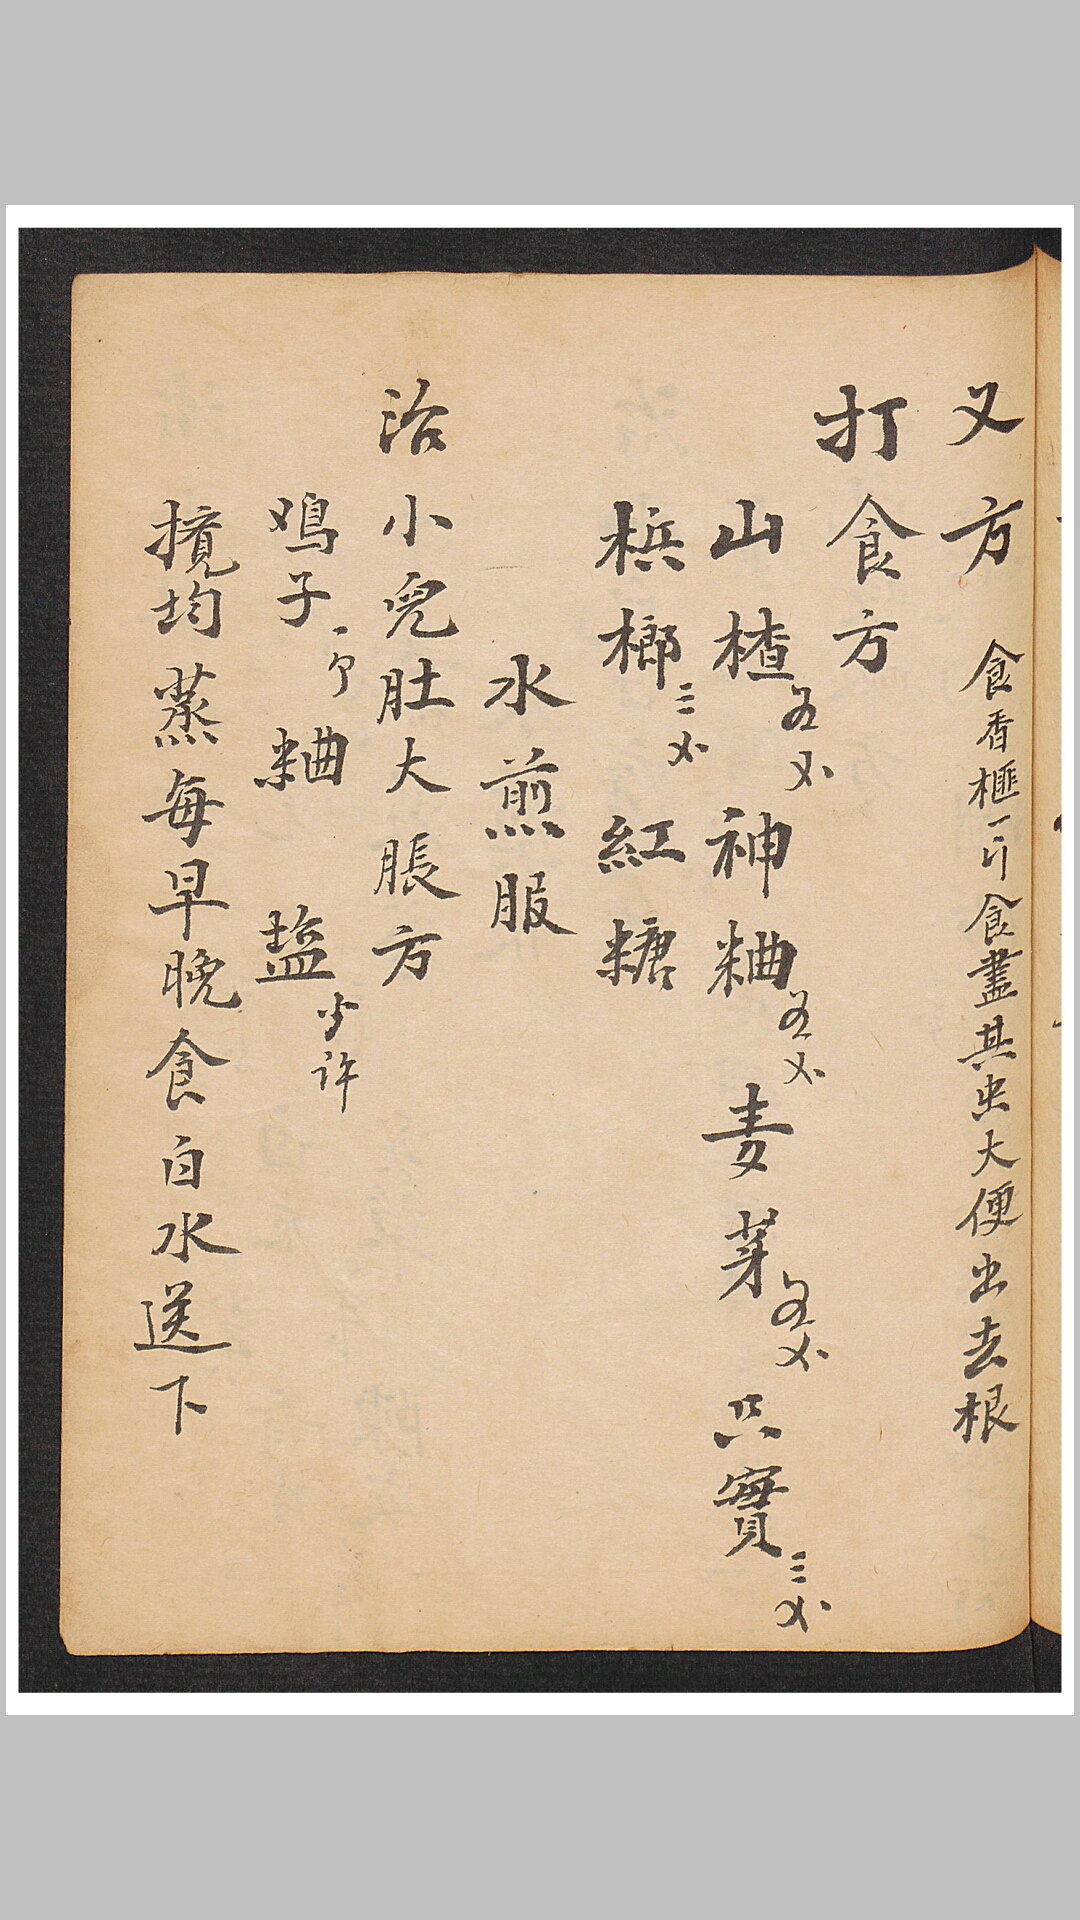 又方 食香榧一斤食盡其虫大便出去根
打食方
山楂五分神粬五分麦芽五分只實三分
梹榔三分紅糖
水煎服
治小児肚大脹方
鸡子一个粬塩少許
搅均蒸每早晚食白水送下